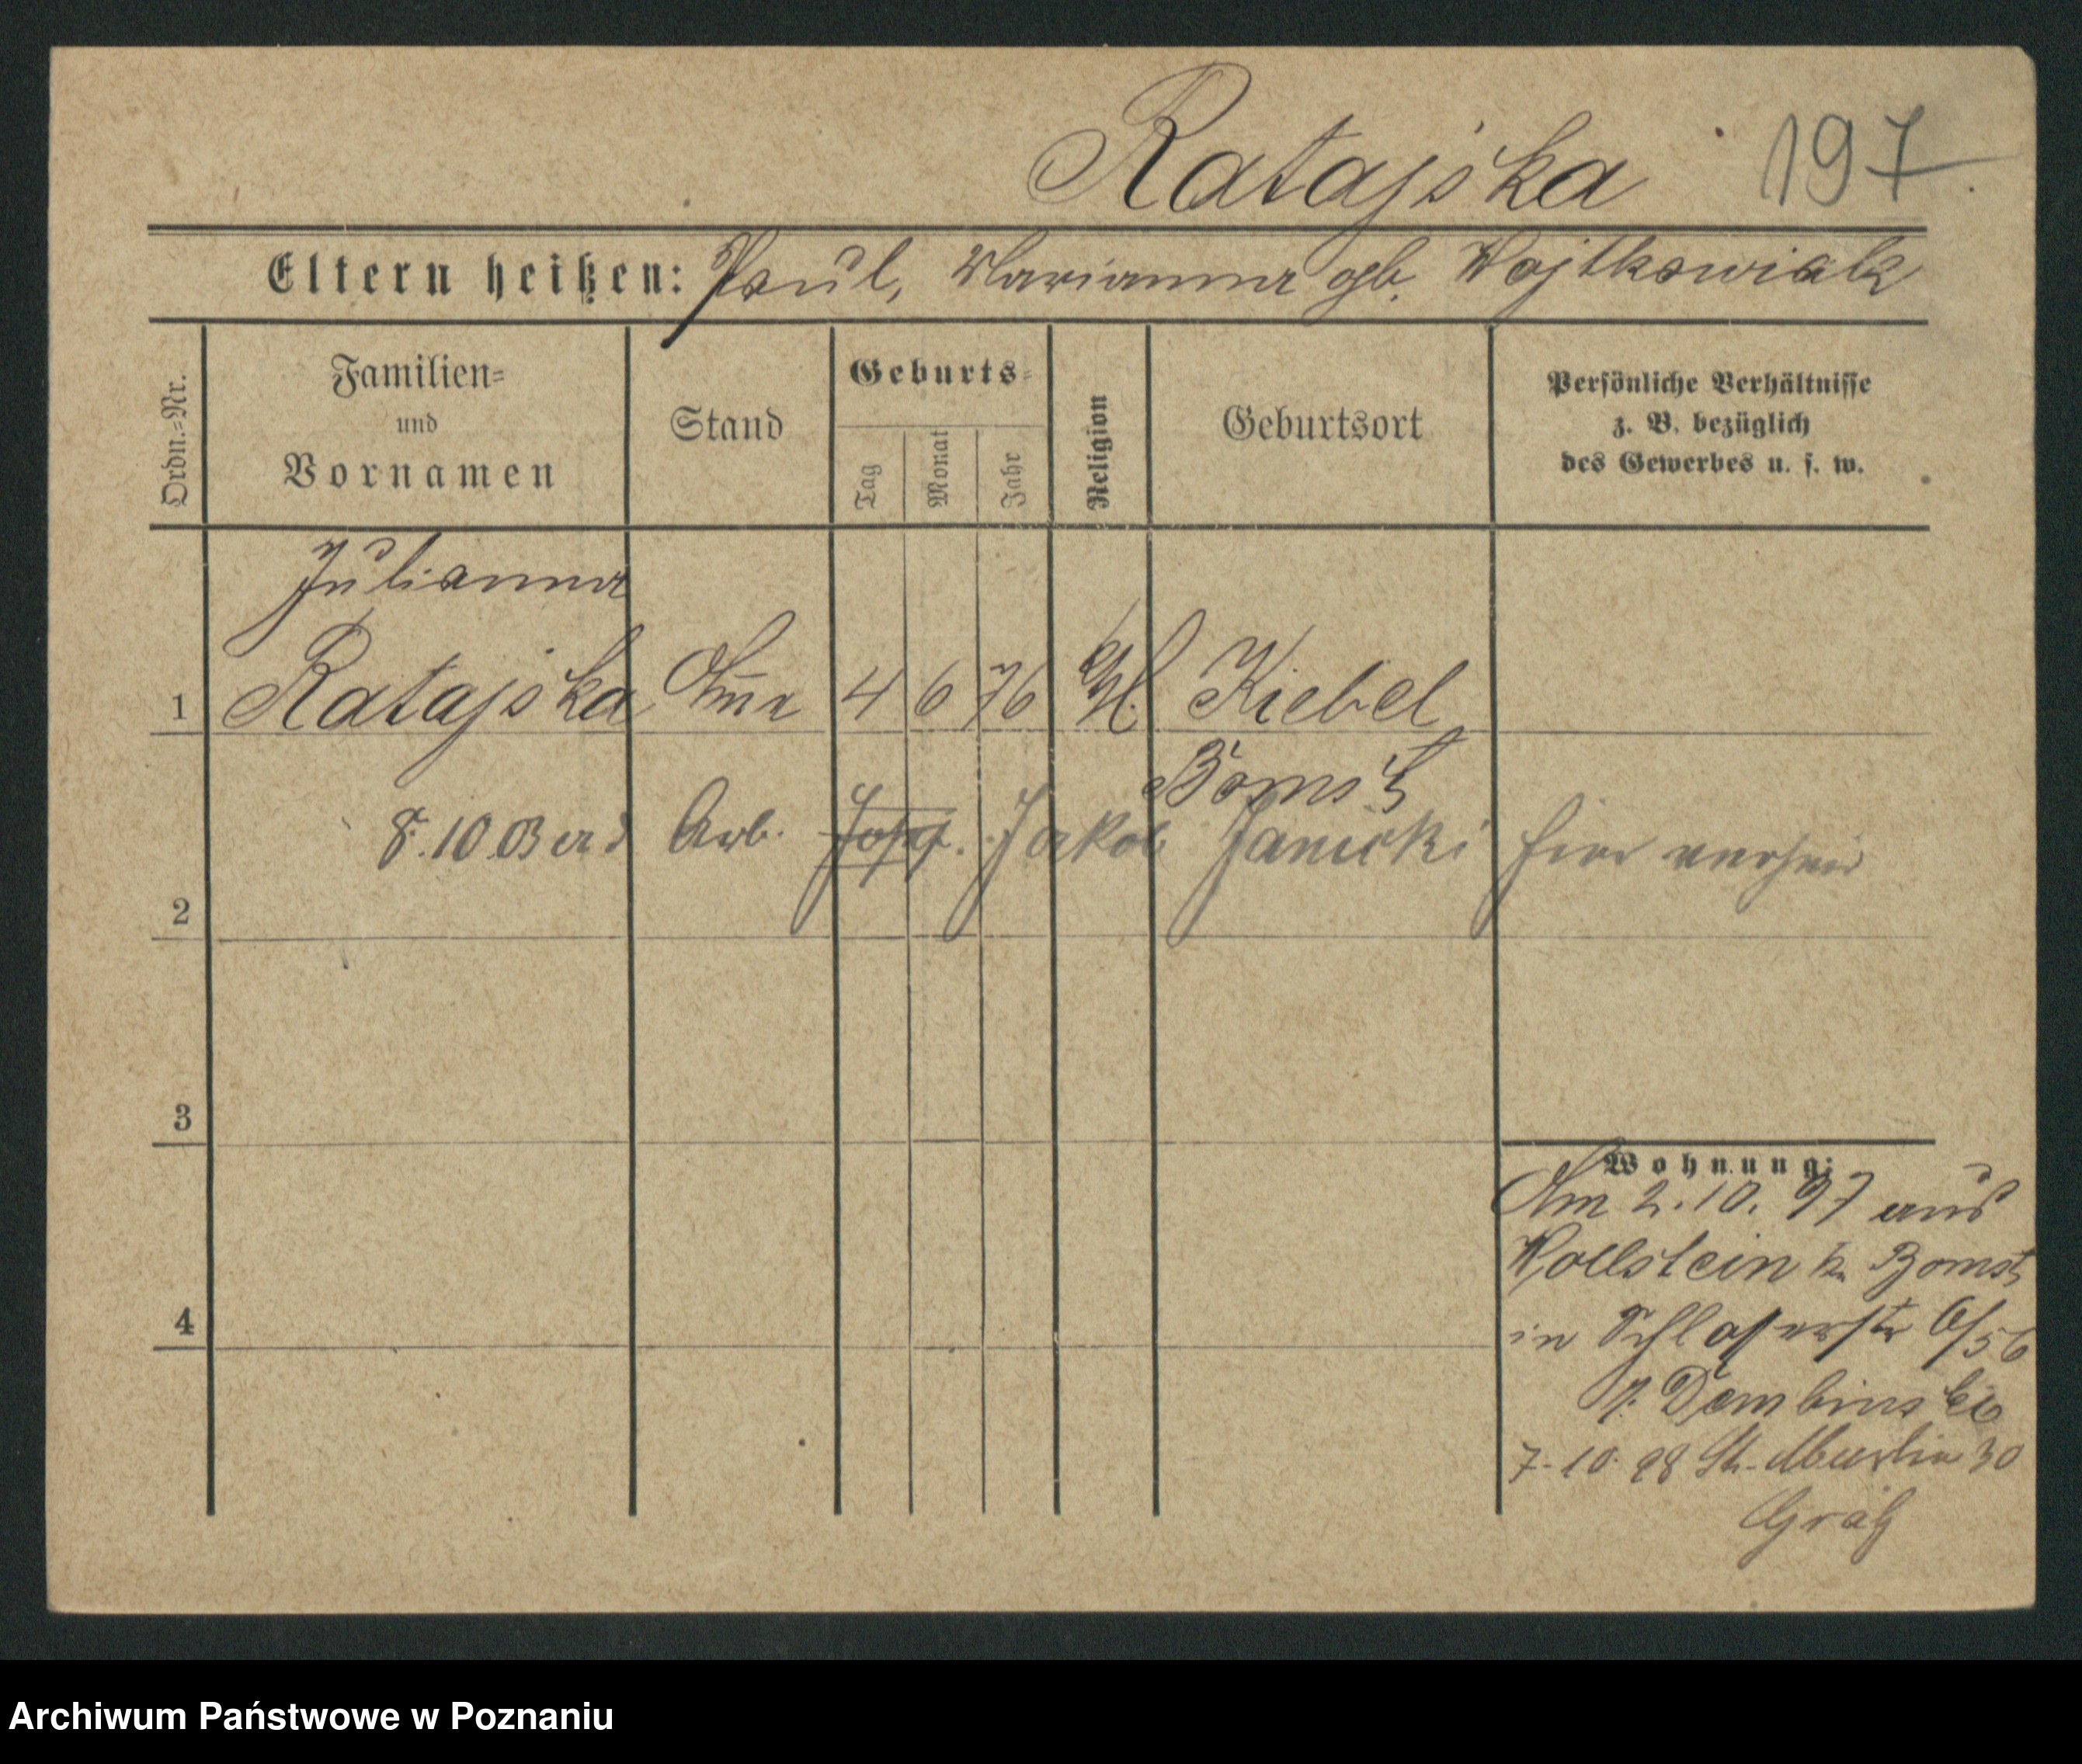 Ratajska 197.
Eltern heißen: Paul, Marianna gb. Wojtkowiak
Ordn.=Nr.
Familien=
und
Vornamen
Stand
Geburts=
Tag
Monat
Jahr
Religion
Geburtsort
Persönliche Verhältnisse
z. B. bezüglich
des Gewerbes u. s. w.
Julianna
1 Ratajska 4 6 76 Kiebel
Bomst
8.10.03 Arb. Jakob Janicki hier
2
3
4
Wohnung:
Am 2.10.97 aus
Wollstein Kr. Bomst
in Schlosserstr 6/56
b. Dembinski
7-10-98 St. Martin 30
Grätz
Archiwum Państwowe w Poznaniu